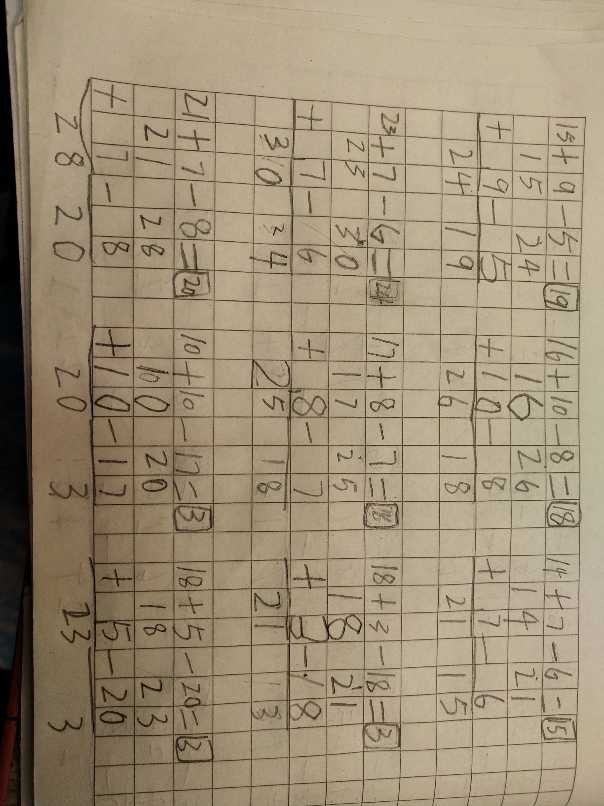 15+9-5=19 16+10-8=18 14+7-6=15
15 24 16 26 14 21
+ 9- 5 +10- 8 + 7- 6
24 19 26 18 21 15
23+7-6=24 17+8-7=18 18+3-18=3
23 30 17 25 18 21
+ 7- 6 + 8- 7 + 3-18
30 24 25 18 21 3
21+7-8=20 10+10-17=3 18+5-20=3
21 28 10 20 18 23
+ 7- 8 +10-17 + 5-20
28 20 20 3 23 3